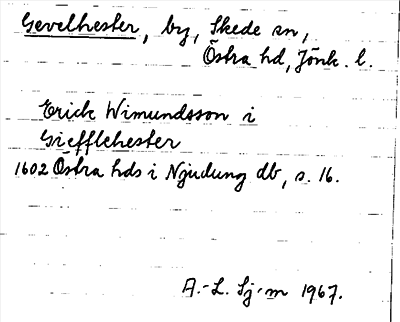 Gevelhester, by, Skede sn,
Östra hd, Jönk. l.
Erick Wimundsson i
Giefflehester
1602 Östra hds i Njudung db, s. 16.
A.-L. Sj-m 1967.